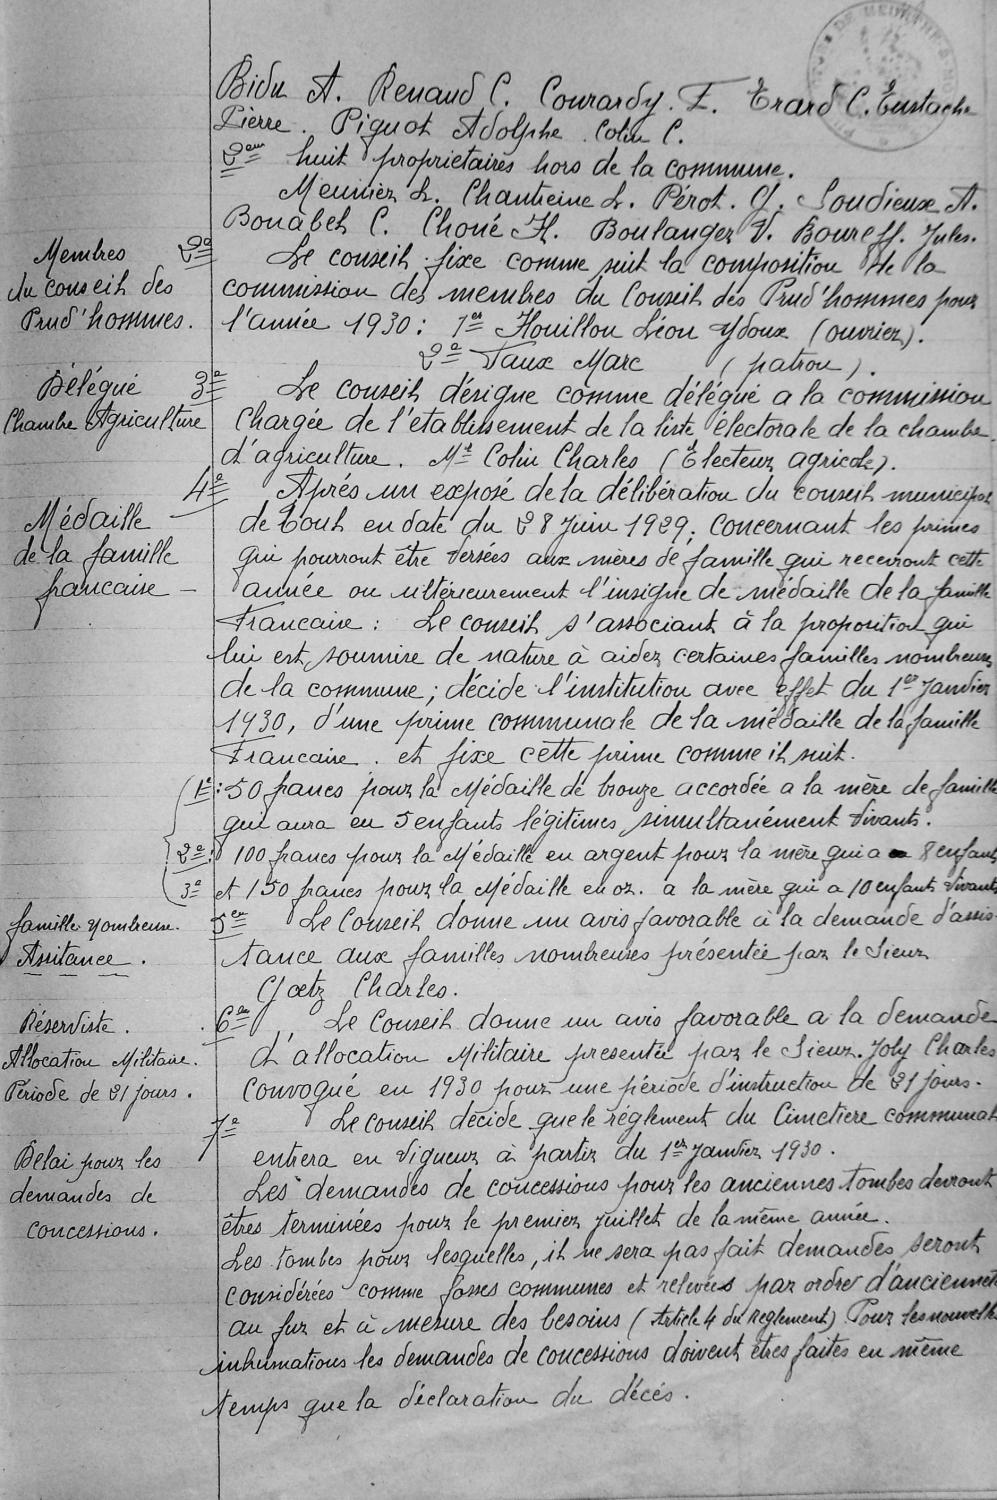 Bidu A. Renaud C. Courardy. F. Erard C. Eustache
Pierre. Piquot Adolphe. Colin C.
2em huit propriétaires hors de la commune.
Meunier L. Chantreine L. Pérot. G. Soudieux A.
Bonabel C. Choné H. Boulanger V. Boureff. Jules.
Membres
du conseil des
Prud'hommes.
2°
Le conseil fixe comme suit la composition de la
commission des membres du Conseil des Prud'hommes pour
l'année 1930: 1er Houillon Léon Ydoux (ouvrier).
2e Taux Marc (patron).
Délégué
Chambre Agriculture
3e
Le conseil désigne comme délégué a la commission
Chargée de l'etablissement de la liste électorale de la chambre
d'agriculture. Mr Colin Charles (Electeur agricole).
Médaille
de la famille
francaise -
4e
Aprés un exposé de la délibération du conseil municipal
de Toul en date du 28 Juin 1929; concernant les primes
qui pourront être versées aux mères de famille qui recevront cette
année ou ultérieurement l'insigne de médaille de la famille
Francaise: Le conseil s'associant à la proposition qui
lui est soumise de nature à aider certaines familles nombreuses
de la commune; décide l'institution avec effet du 1er Janvier
1930, d'une prime communale de la médaille de la famille
Francaise. et fixe cette prime comme il suit.
1e: 50 francs pour la Médaille de bronze accordée a la mère de famille
qui aura eu 5 enfants légitimes simultanément vivants.
2e: 100 francs pour la Médaille en argent pour la mère qui a 8 enfants
3e et 150 francs pour la Médaille en or. a la mère qui a 10 enfants vivants
famille nombreuse.
Assitance.
5em
Le Conseil donne un avis favorable à la demande d'assis
tance aux familles nombreuses présentée par le Sieur
Gœtz Charles.
Réserviste.
Allocation Militaire.
Période de 21 jours.
6em
Le Conseil donne un avis favorable a la demande
d'allocation Militaire presentée par le Sieur. Joly Charles
Convoqué en 1930 pour une période d'instruction de 21 jours.
Délai pour les
demandes de
concessions.
7e
Le conseil décide que le réglement du Cimetiere communal
entrera en vigueur à partir du 1er Janvier 1930.
Les demandes de concessions pour les anciennes tombes devront
êtres terminées pour le premier Juillet de la même année.
Les tombes pour lesquelles, il ne sera pas fait demandes seront
considérées comme fosses communes et relevées par ordre d'ancienneté
au fur et à mesure des besoins (Article 4 du Reglement) Pour les nouvelles
inhumations les demandes de concessions doivent êtres faites en même
temps que la déclaration du décés.